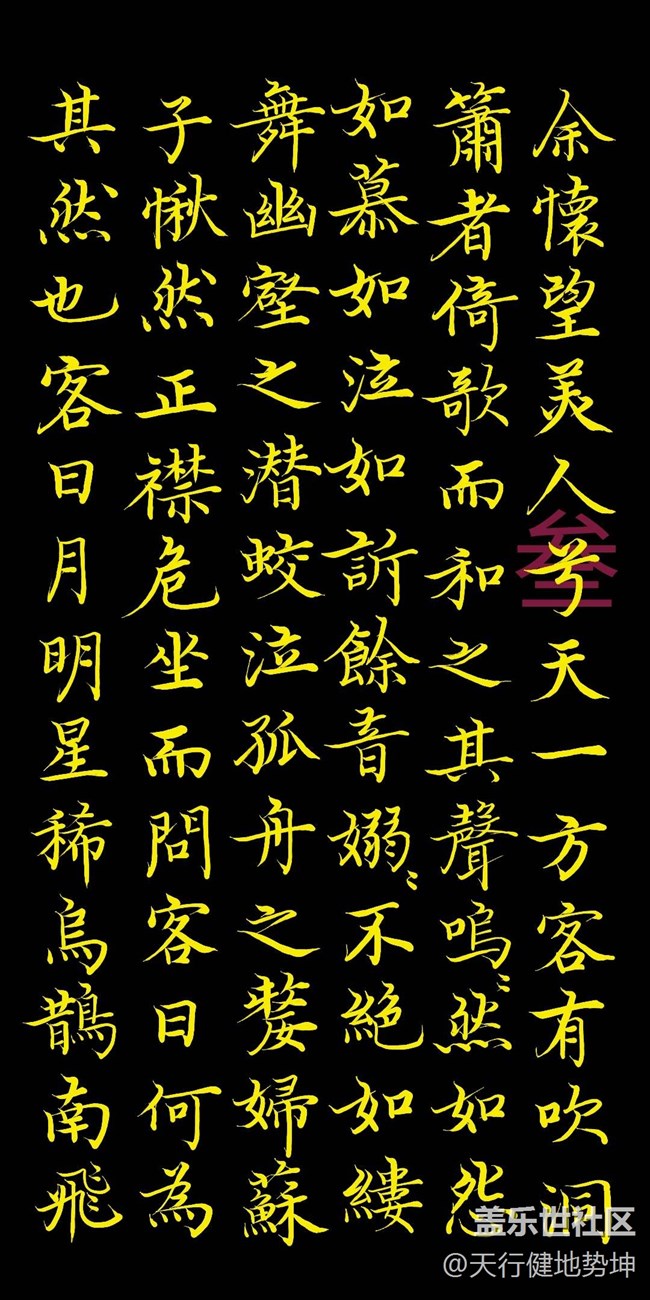 余懷望美人兮天一方客有吹洞
簫者倚歌而和之其聲嗚〻然如怨
如慕如泣如訴餘音嫋〻不絕如縷
舞幽壑之潜蛟泣孤舟之嫠婦蘇
子愀然正襟危坐而問客曰何為
其然也客曰月明星稀烏鵲南飛
叁
盖乐世社区
@天行健地势坤